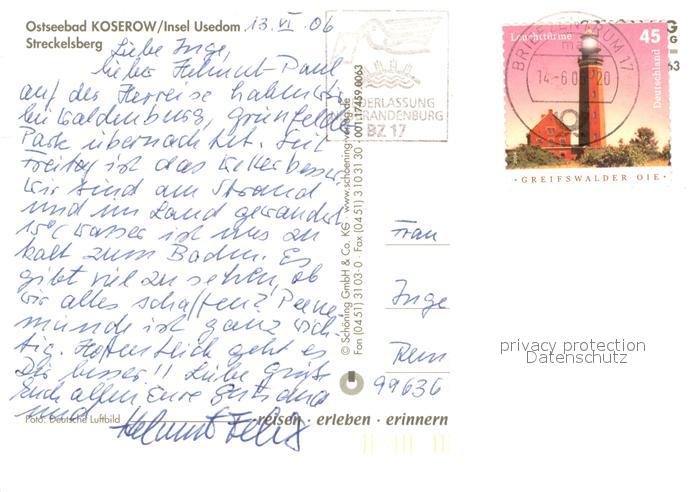 Ostseebad KOSEROW/Insel Usedom
Streckelsberg
13. VI. 06
Liebe Inge,
lieber Helmut-Paul
auf der Herreise haben wir
bei Waldenburg, Grünfelder
Park übernachtet. Seit
Freitag ist das Wetter besser.
Wir sind am Strand
und im Land gewandert
15°C Wasser ist uns zu
kalt zum Baden. Es
gibt viel zu sehen, ob
wir alles schaffen? Peene
münde ist ganz wich
tig. Hoffentlich geht es
Dir besser!! Liebe Grüße
Euch allen Eure
und Helmut
Foto: Deutsche Luftbild
reisen · erleben · erinnern
© Schöning GmbH & Co. KG · www.schoening-verlag.de
Fon (0451) 3103-0 · Fax (0451) 31031 30 · 001.17439.0063
BRIEFZENTRUM 17
14.-6.06-20
NIEDERLASSUNG
BRANDENBURG
BZ 17
Leuchttürme
45
Deutschland
· GREIFSWALDER OIE ·
Frau
Inge
99636
privacy protection
Datenschutz